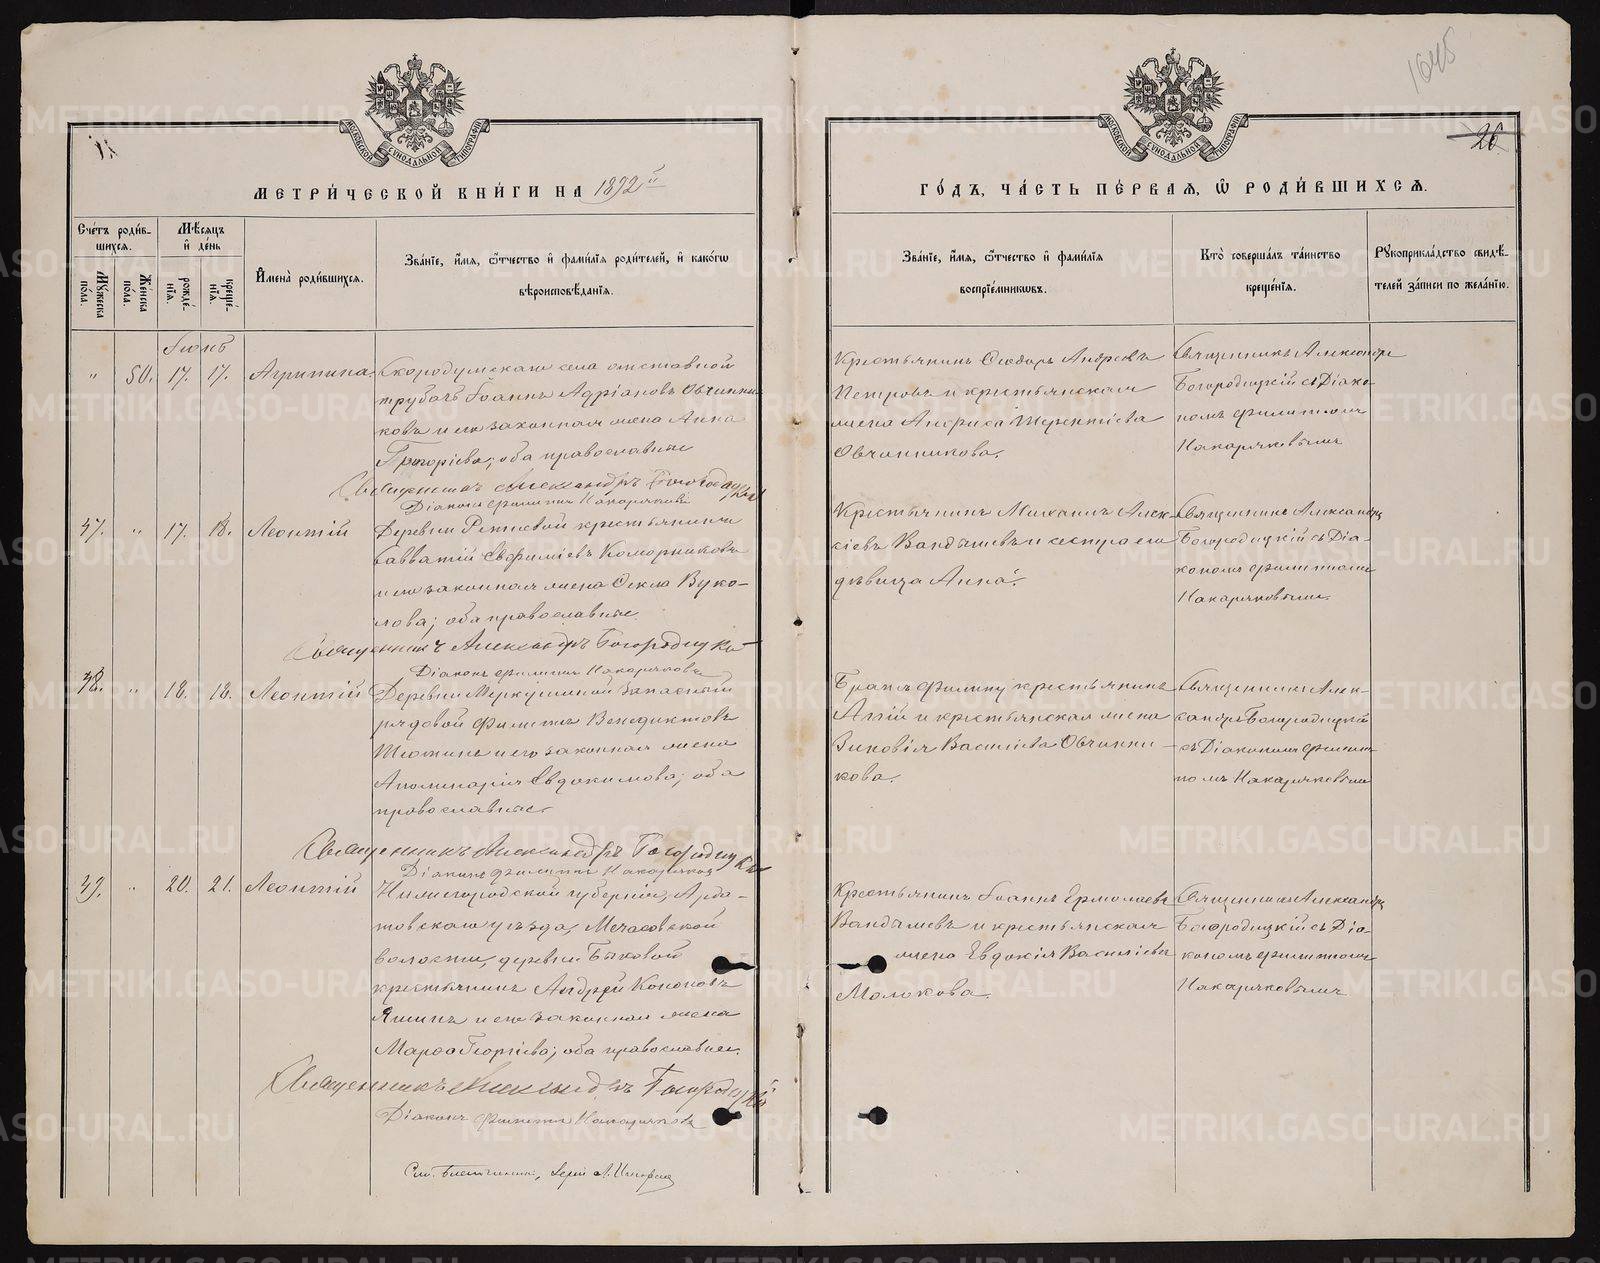 1645
26
МОСКОВСКОЙ СѴНОДАЛЬНОЙ ТИПОГРАФІИ
МОСКОВСКОЙ СѴНОДАЛЬНОЙ ТИПОГРАФІИ
МЕТРИ́ЧЕСКОЙ КНИ́ГИ НА 1892й
ГО́ДЪ, ЧА́СТЬ ПЕ́РВАЯ, Ѡ РОДИ́ВШИХСѦ.
Счє́тъ роди́в-
шихсѧ.
Мѣ́сѧцъ
и҆ дє́нь
Мꙋ́жєска по́ла.
Жє́нска по́ла.
рождє́-нїѧ.
крєщє́-нїѧ.
И҆мєна̀ роди́вшихсѧ.
Зва́нїє, и҆́мѧ, ѻ҆́тчєство и҆ фами́лїѧ роди́тєлєй, и҆ како́гѡ
вѣроисповѣ́данїѧ.
Зва́нїє, и҆́мѧ, ѻ҆́тчєство и҆ фами́лїѧ
воспрїє́мникѡвъ.
Кто̀ совєрша́лъ та́инство
крєщє́нїѧ.
Рꙋкоприкла́дство свидѣ́-
тєлєй за́писи по жєла́нїю.
Іюнь
" 50. 17. 17. Агрипина. Скородумскаго села отставной
трубачъ Іоаннъ Адріановъ Овчинни-
ковъ и его законная жена Анна
Григоріева; оба православные
Священникъ Александръ Богородицкій
Діаконъ Филиппъ Накоряковъ
Крестьянинъ Ѳеодоръ Андреевъ
Петровъ и крестьянская
жена Анфиса Терентіева
Овчинникова.
Священникъ Александръ
Богородицкій съ Діако-
номъ Филиппомъ
Накоряковымъ
47. " 17. 18. Леонтій Деревни Ретневой крестьянинъ
Савватій Евфиміевъ Коморниковъ
и его законная жена Ѳекла Вуко-
лова; оба православные
Священникъ Александръ Богородицкій
Діаконъ Филиппъ Накоряковъ
Крестьянинъ Михаилъ Алек-
сіевъ Вандышевъ и сестра его
дѣвица Анна.
Священникъ Александръ
Богородицкій съ Діа-
кономъ Филиппомъ
Накоряковымъ.
48. " 18. 18. Леонтій Деревни Меркушиной запасный
рядовой Филиппъ Венедиктовъ
Шеожинъ и его законная жена
Аполинарія Евдокимова; оба
православные.
Священникъ Александръ Богородицкій
Діаконъ Филиппъ Накоряковъ
Братъ Филиппу крестьянинъ
Аггій и крестьянская жена
Зиновія Василіева Овчинни-
кова.
Священникъ Алек-
сандръ Богородицкій
съ Діакономъ Филип-
помъ Накоряковымъ
49. " 20. 21. Леонтій Нижегородской губерніи, Арда-
товскаго уѣзда, Мечасовской
волости, деревни Быковой
крестьянинъ Андрей Кононовъ
Яшинъ и его законная жена
Марѳа Георгіева; оба православные.
Священникъ Александръ Богородицкій
Діаконъ Филиппъ Накоряковъ
Крестьянинъ Іоаннъ Ермолаевъ
Вандышевъ и крестьянская
жена Евдокія Василіева
Молокова.
Священникъ Александръ
Богородицкій съ Діа-
кономъ Филиппомъ
Накоряковымъ
METRIKI.GASO-URAL.RU